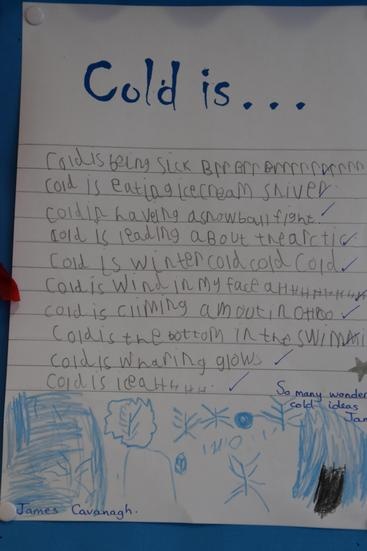 Cold is...
Cold is being sick Brr Brr Brrrrrrrrrrr
cold is eating icecream Shiver
cold is haveing a snow ball fight.
cold is leading about the arctic
Cold is winter cold cold cold
Cold is wind in my face aHHHHHHH
cold is climing a moutin
Cold is the bottom in the swimmi
cold is wharing glows
Cold is icea HHHH.
So many wonder
cold ideas
Jam
James Cavanagh.